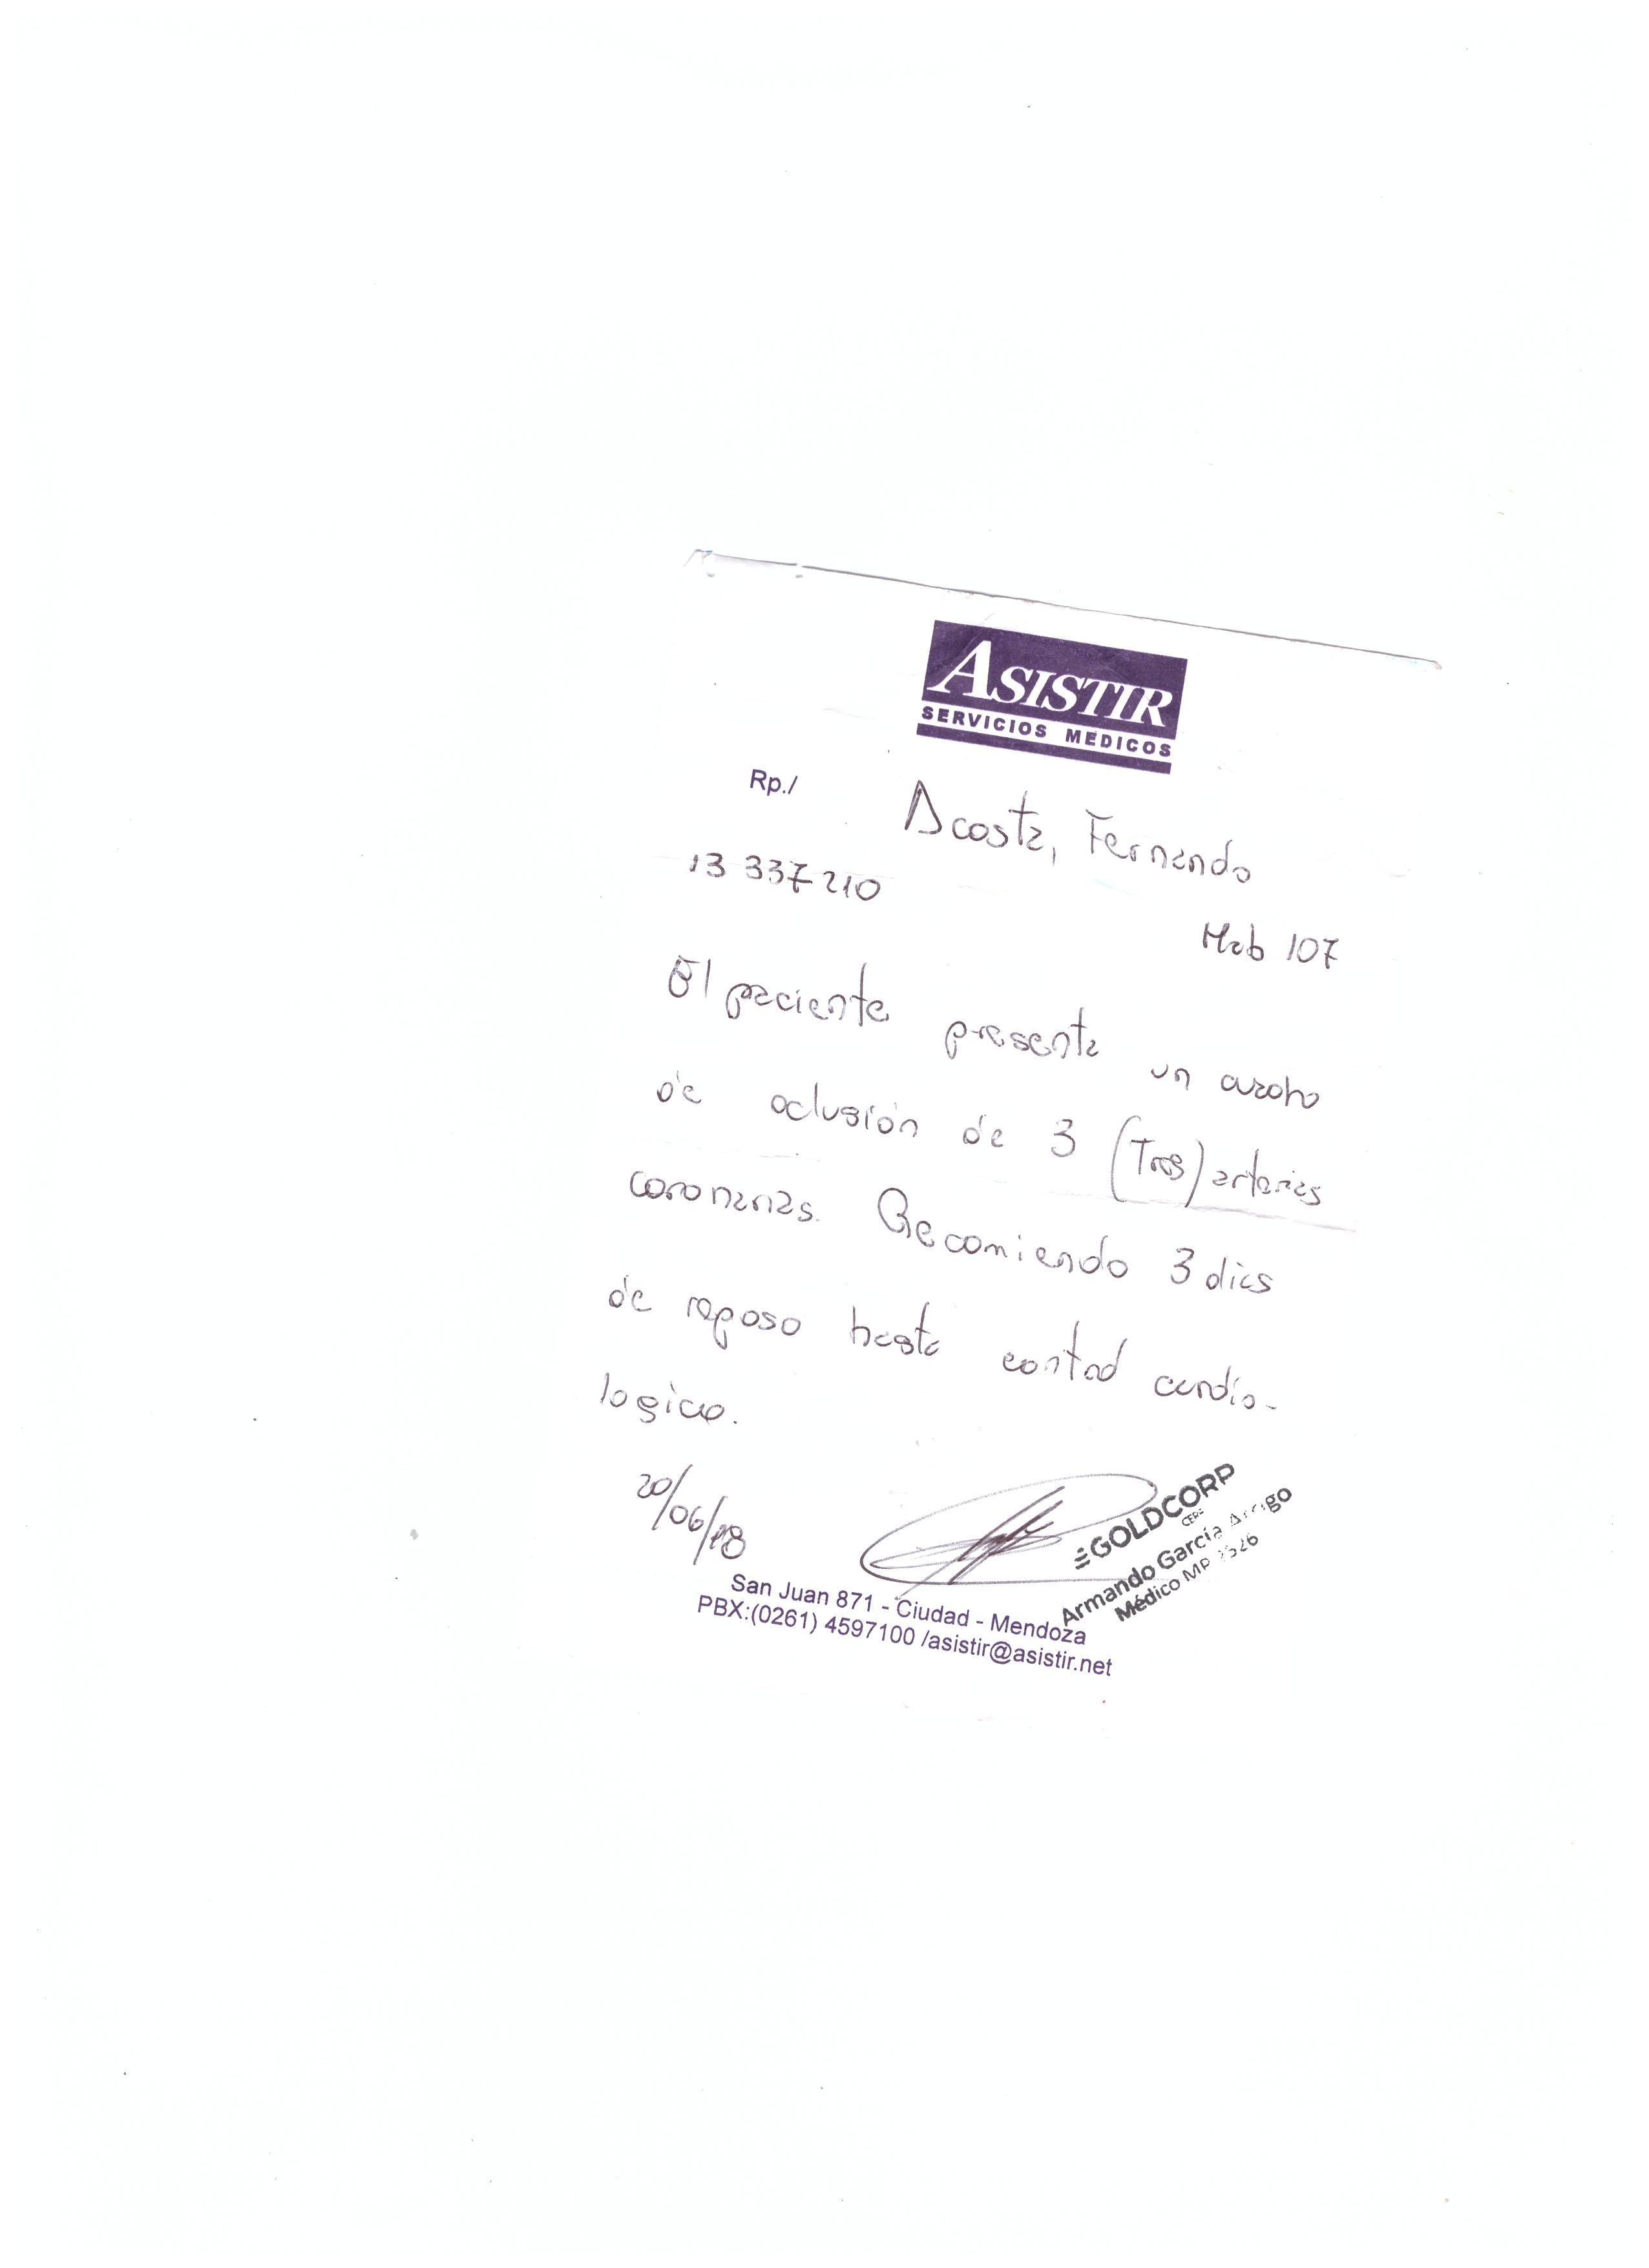 ASISTIR
SERVICIOS MEDICOS
Rp./
Acosta, Fernando
13 337 210
Hab 107
El paciente presenta un cuadro
de oclusión de 3 (Tres) arterias
coronarias. Recomiendo 3 dias
de reposo hasta control cardio-
logico.
20/06/18
GOLDCORP
Armando García
Médico MP
San Juan 871 - Ciudad - Mendoza
PBX:(0261) 4597100 /asistir@asistir.net